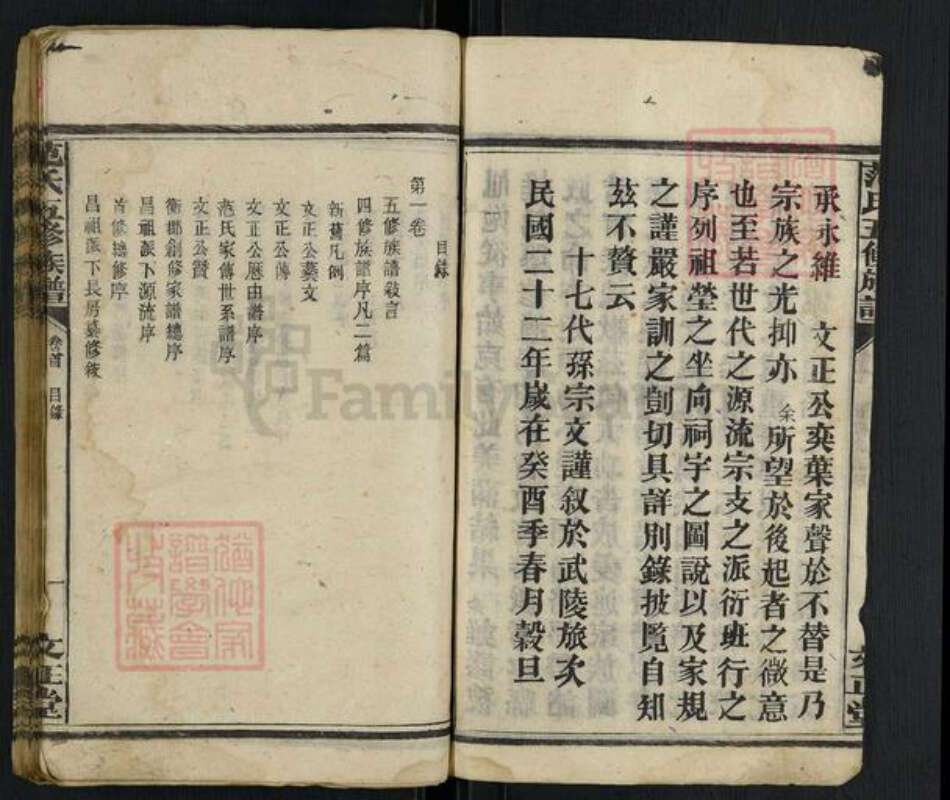 承永維　文正公奕葉家聲於不替是乃
宗族之光抑亦余所望於後起者之微意
也至若世代之源流宗支之派衍班行之
序列祖塋之坐向祠宇之圖說以及家規
之謹嚴家訓之剴切具詳別錄披覽自知
茲不贅云
十七代孫宗文謹叙於武陵旅次
民國二十二年歲在癸酉季春月穀旦
范氏五修族譜
文正堂
目錄
第一卷
五修族譜敍言
四修族譜序凡二篇
新舊凡例
文正公藝文
文正公傳
文正公歷由譜序
范氏家傳世系譜序
文正公贊
衡郡創修家譜總序
昌祖派下源流序
首修總修序
昌祖派下長房纂修後
范氏五修族譜
卷首　目錄
一
文正堂
譜學會
收藏
Family